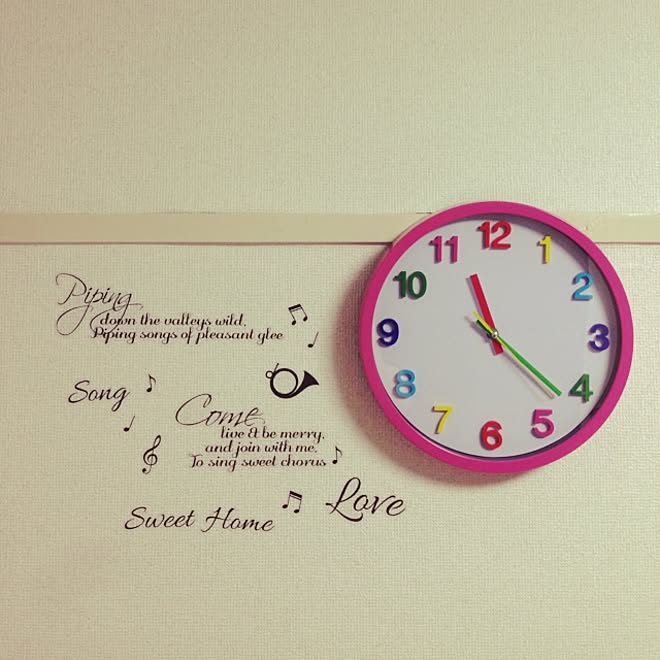 Piping
down the valleys wild,
Piping songs of pleasant glee
Song
Come
live & be merry,
and join with me,
To sing sweet chorus
Love
Sweet Home
12
1
2
3
4
5
6
7
8
9
10
11